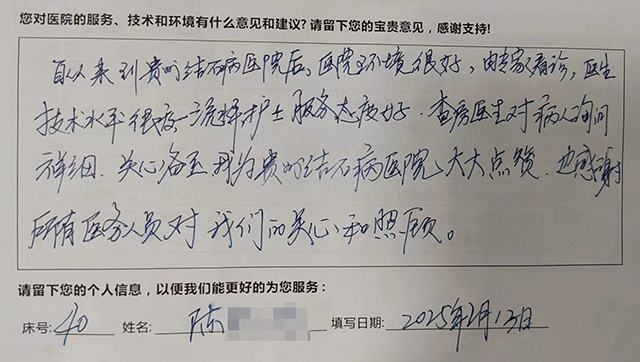 您对医院的服务、技术和环境有什么意见和建议？请留下您的宝贵意见，感谢支持！
自从来到贵州结石病医院后，医院环境很好，由专家看诊，医生
技术水平很疫一流，样护士服务态度好．查房医生对病人询问
详细．关心备至我为贵州结石病医院，大大点赞．也感谢
所有医务人员对我们的关心和照顾。
请留下您的个人信息，以便我们能更好的为您服务：
床号：40 姓名：陈 填写日期：2025年2月13日